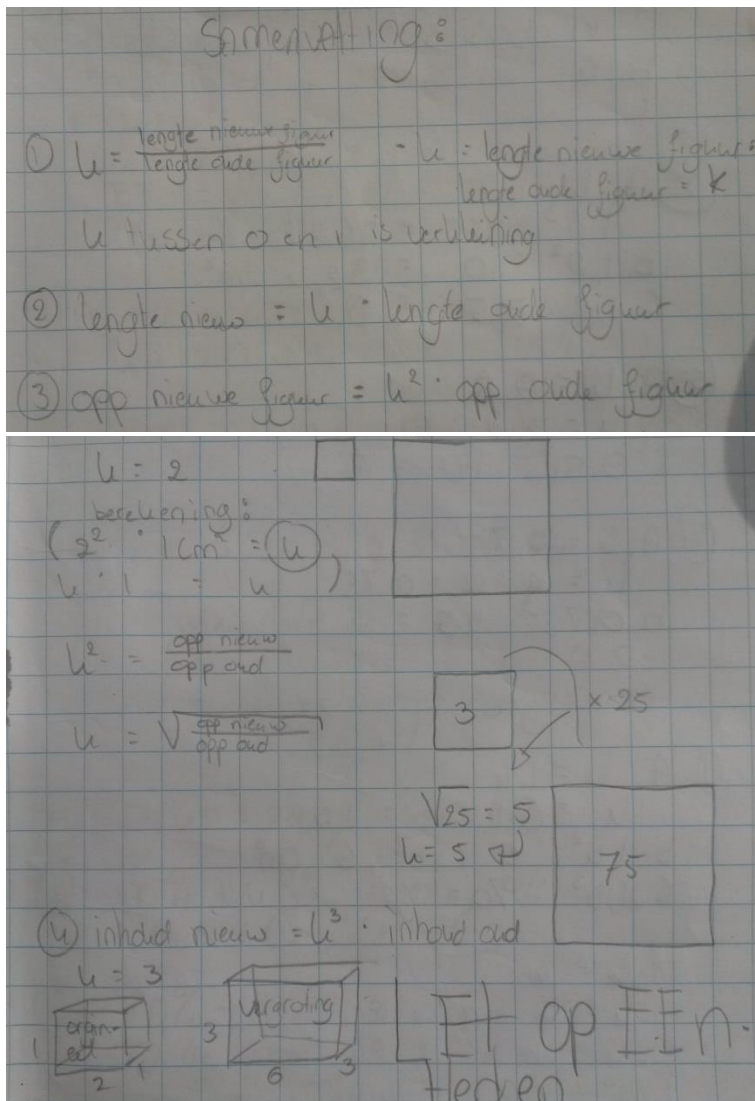 Samenvatting:
① k = lengte nieuwe figuur / lengte oude figuur · k = lengte nieuwe figuur:
lengte oude figuur = k
k tussen 0 en 1 is verkleining
② lengte nieuw = k · lengte oude figuur
③ opp nieuwe figuur = k² · opp oude figuur
k = 2
berekening:
(2² · 1cm² = 4,
4 · 1 = 4)
k² = opp nieuw / opp oud
3
× 25
k = √(opp nieuw / opp oud)
√25 = 5
k = 5
75
④ inhoud nieuw = k³ · inhoud oud
k = 3
origineel
1
2
1
vergroting
3
6
3
LEt op EEn-
heden